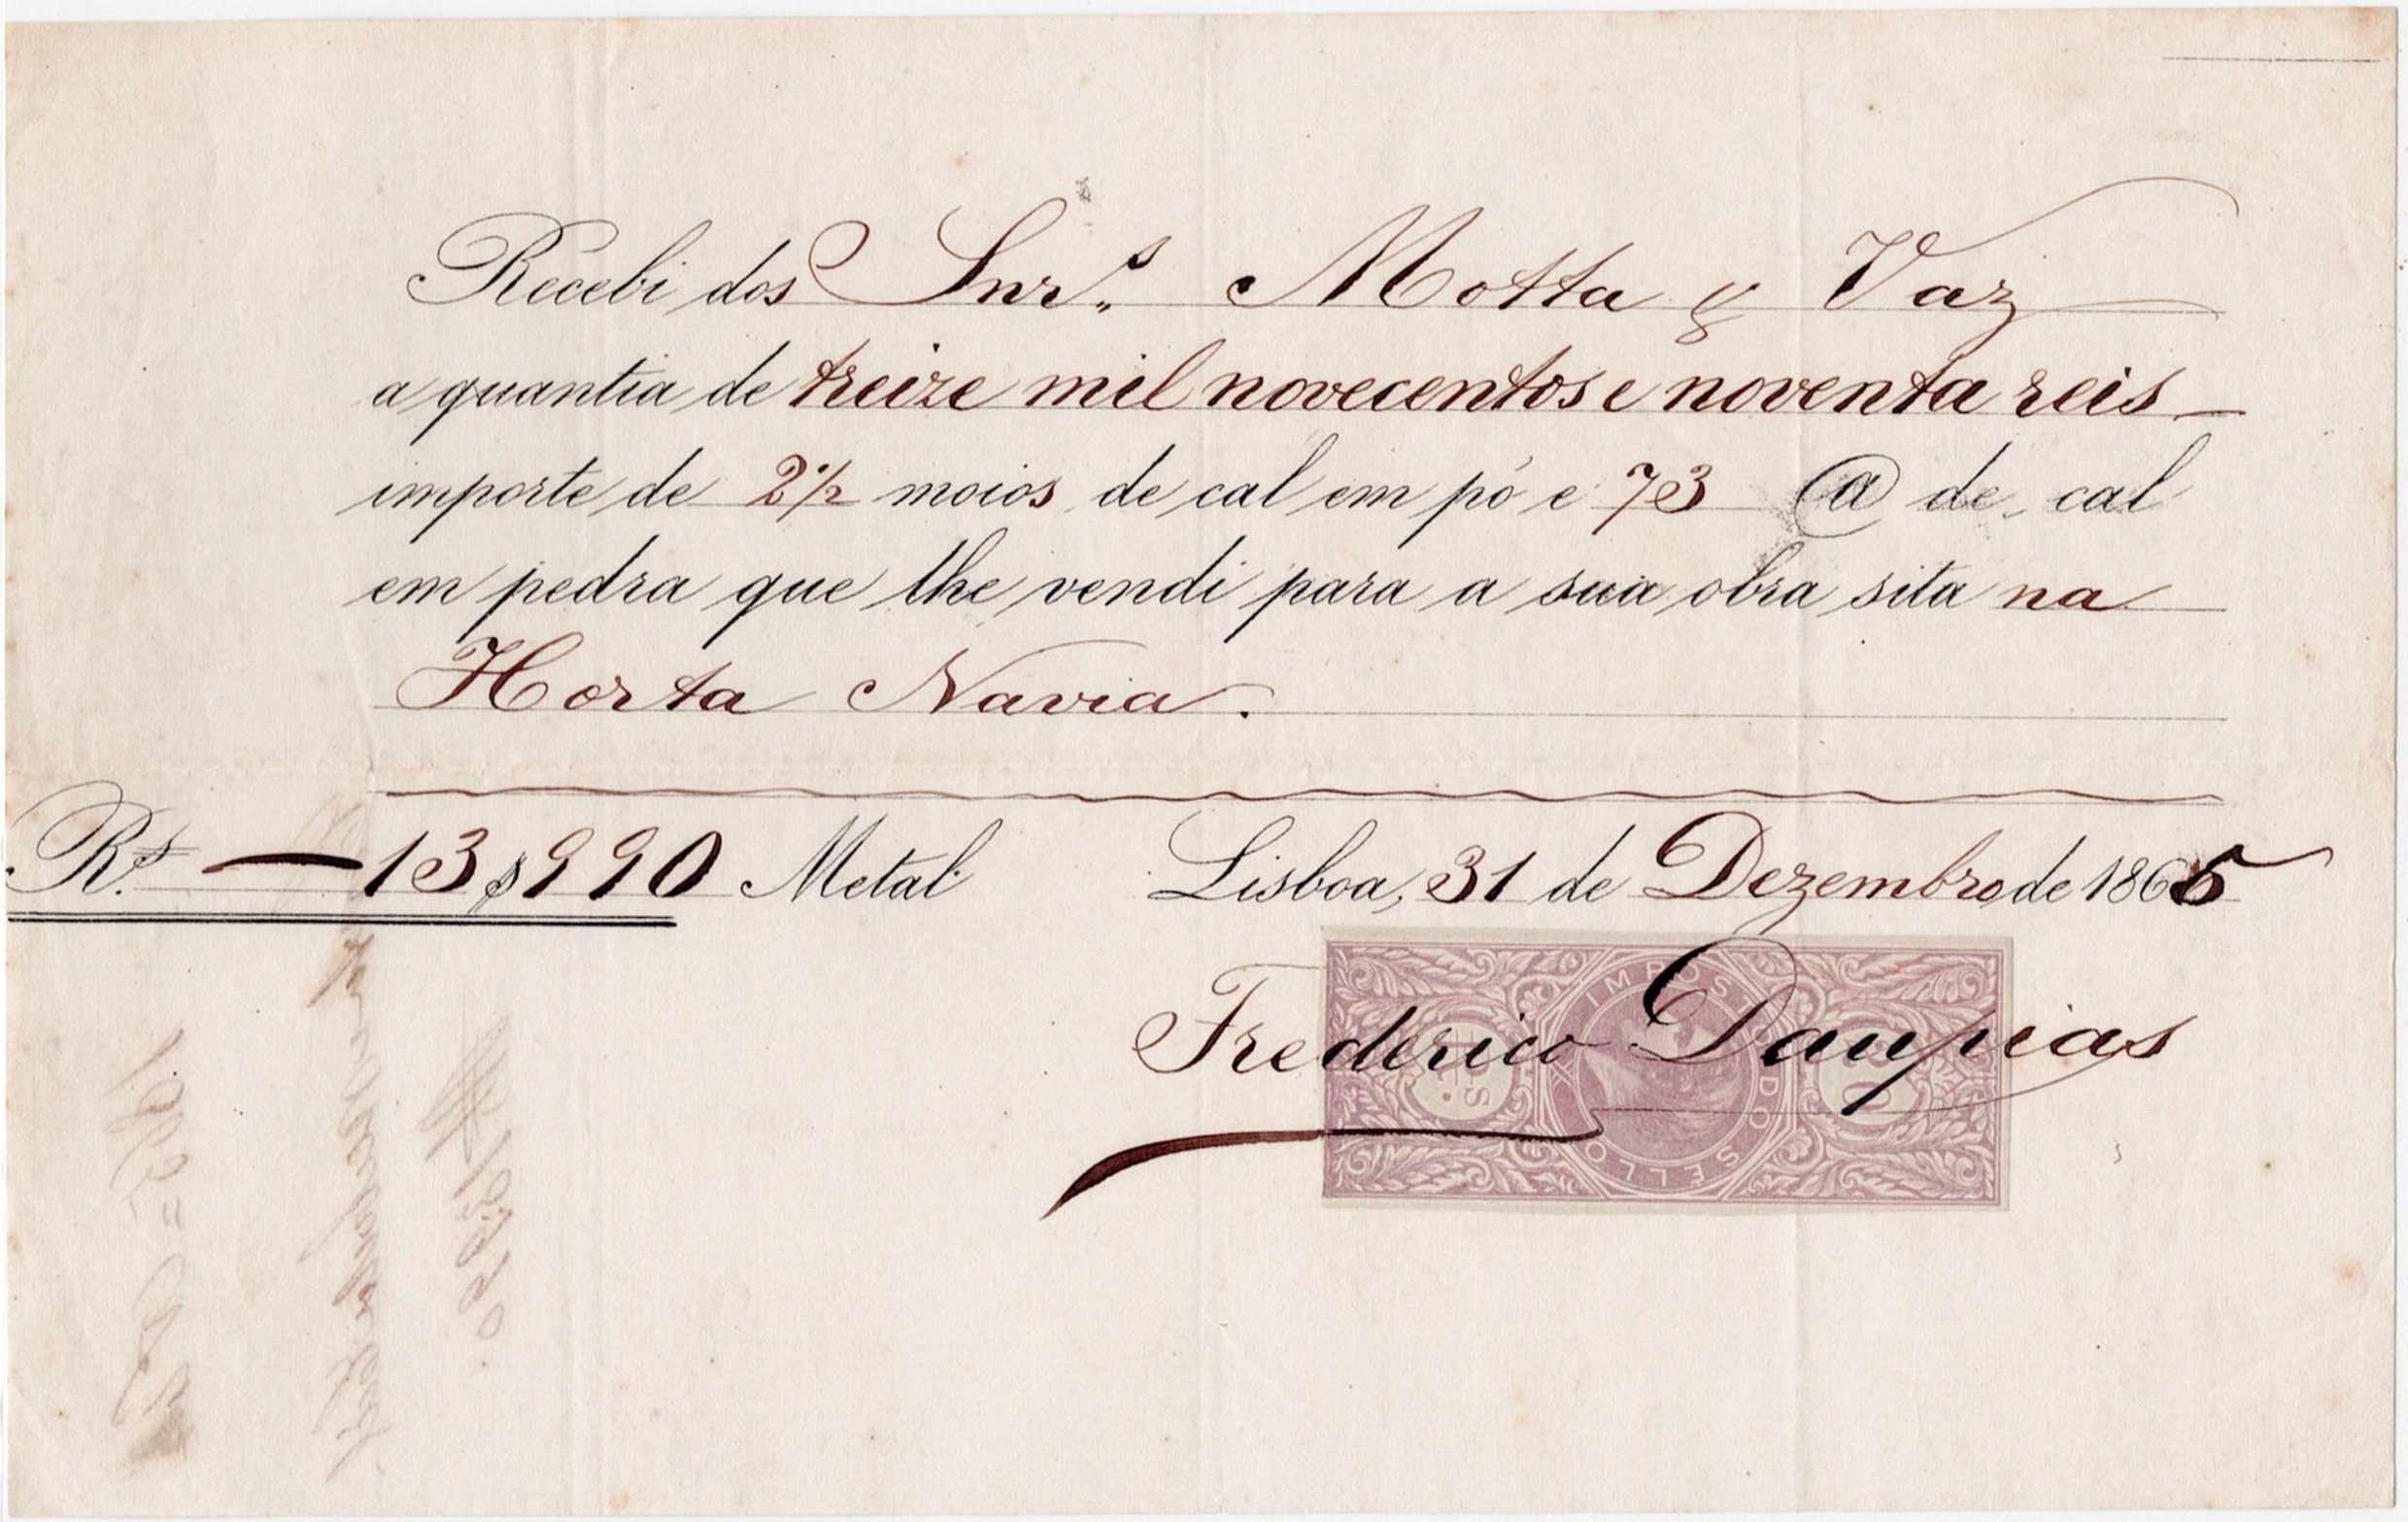 Recebi dos Snr.s Motta & Vaz
a quantia de treize mil novecentos e noventa reis
importe de 2 1/2 moios de cal em pó e 73 @ de cal
em pedra que lhe vendi para a sua obra sita na
Horta Navia.
R.s 13$990 Metal Lisboa, 31 de Dezembro de 1865
Frederico Daupias
IMPOSTO DO SELLO